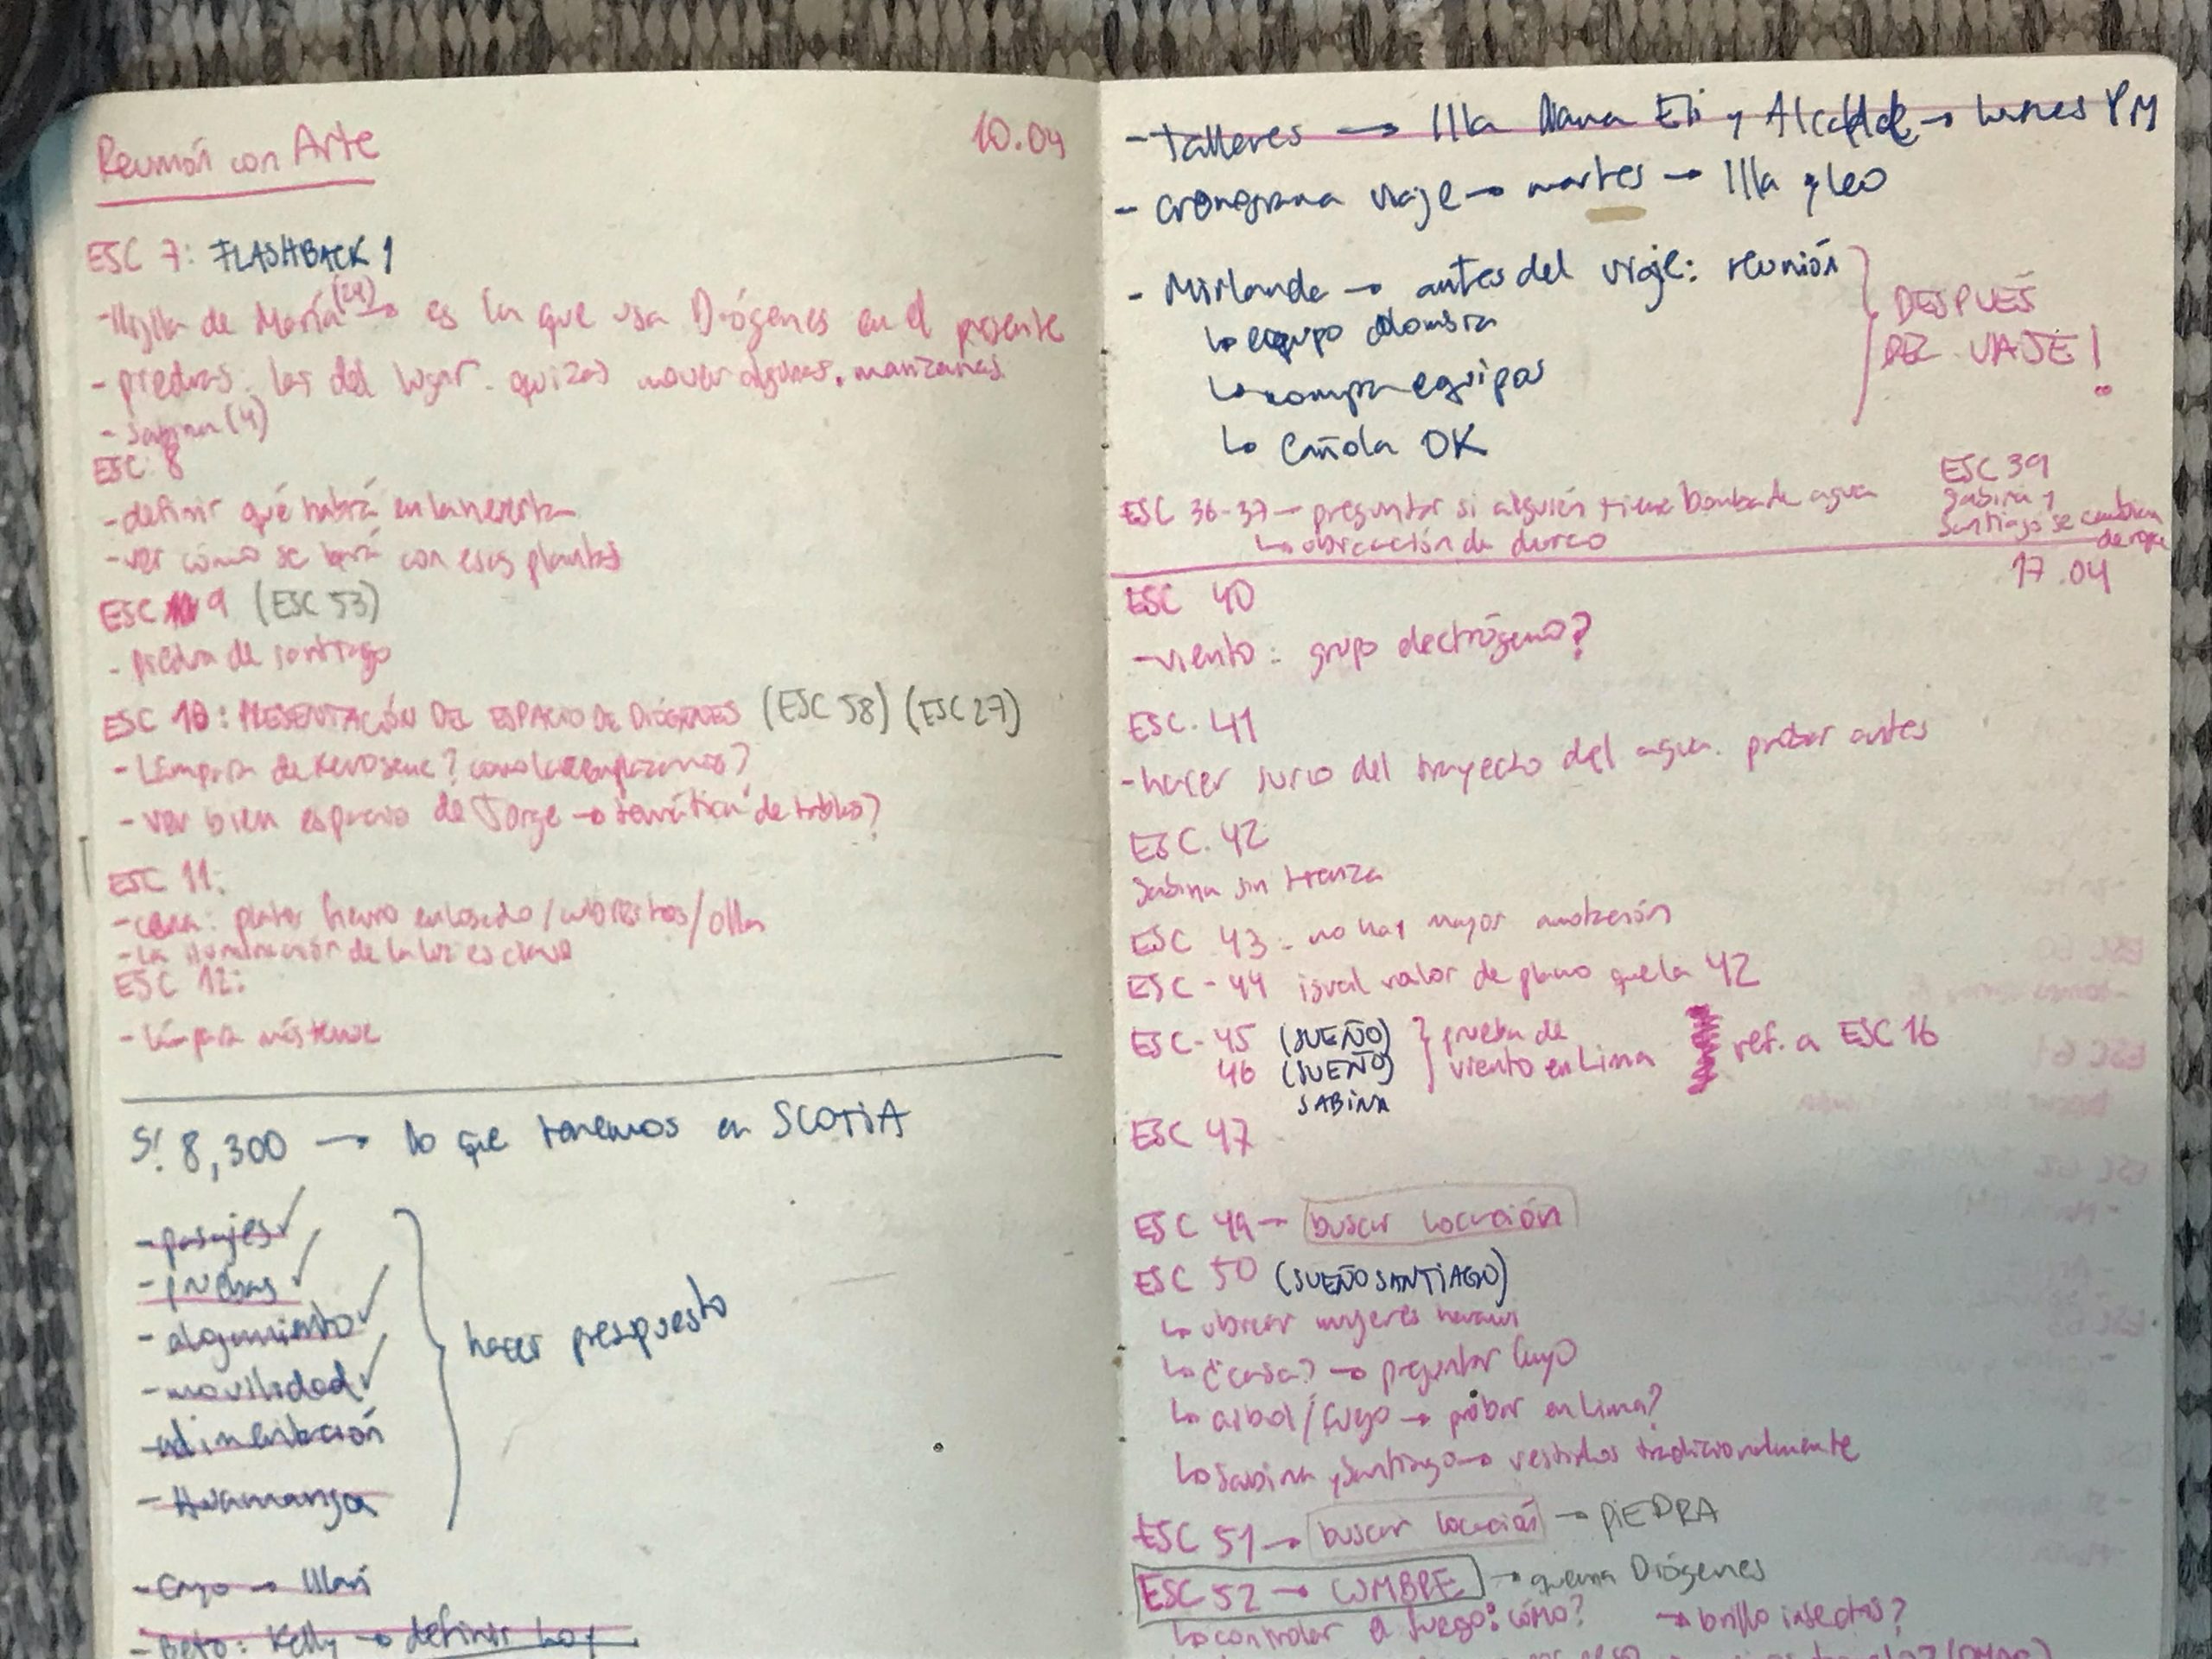 Reunión con Arte
10.04
ESC 7: FLASHBACK 1
- lliqlla de María (24) → es la que usa Diógenes en el presente
- piedras: las del lugar. quizás mover algunas. manzanas.
- Sabina (4)
ESC. 8
- definir qué habrá en la huerta
- ver cómo se hará con esas plantas
ESC 9 (ESC 53)
- piedra de santiago
ESC 10: PRESENTACIÓN DEL ESPACIO DE DIÓGENES (ESC 58) (ESC 27)
- Lámpara de kerosene? como la reemplazamos?
- ver bien espacio de Jorge → temática de tablas?
ESC 11:
- cena: platos fierro enlosado/cubiertos/olla
- La iluminación de la luz es clave
ESC 12:
- lámpara más tenue
S/. 8,300 → lo que tenemos en SCOTIA
- pasajes ✓
- pruebas ✓
- alojamiento ✓
- movilidad ✓
- alimentación
- Huamanga
hacer presupuesto
- Cayo → Illari
- Beto: Kelly → definir hoy
- Talleres → Illa Diana Eli y Alcalde → lunes PM
- cronograma viaje → martes → Illa y Leo
- Mirlanda → antes del viaje: reunión
↳ equipo alombra
↳ compra equipos
↳ Cañola OK
DESPUÉS
DEL VIAJE!
ESC 36-37 → preguntar si alguien tiene bomba de agua
↳ ubicación de durco
ESC 39
Sabina y
Santiago se cambian
de ropa
17.04
ESC 40
- viento: grupo electrógeno?
ESC. 41
- hacer surco del trayecto del agua. probar antes
ESC. 42
Sabina sin trenza
ESC 43: no hay mayor anotación
ESC - 44 igual valor de plano que la 42
ESC - 45 (SUEÑO)
46 (SUEÑO)
SABINA
prueba de
viento en Lima
ref. a ESC 16
ESC 47
ESC 49 → buscar locación
ESC 50 (SUEÑO SANTIAGO)
↳ ubicar mujeres harawi
↳ ¿casa? → preguntar Cayo
↳ arbol/fuego → probar en Lima?
↳ Sabina y Santiago → vestidos tradicionalmente
ESC 51 → buscar locación → PIEDRA
ESC 52 → CUMBRE → quema Diógenes
↳ controlar el fuego: cómo? → brillo insectos?